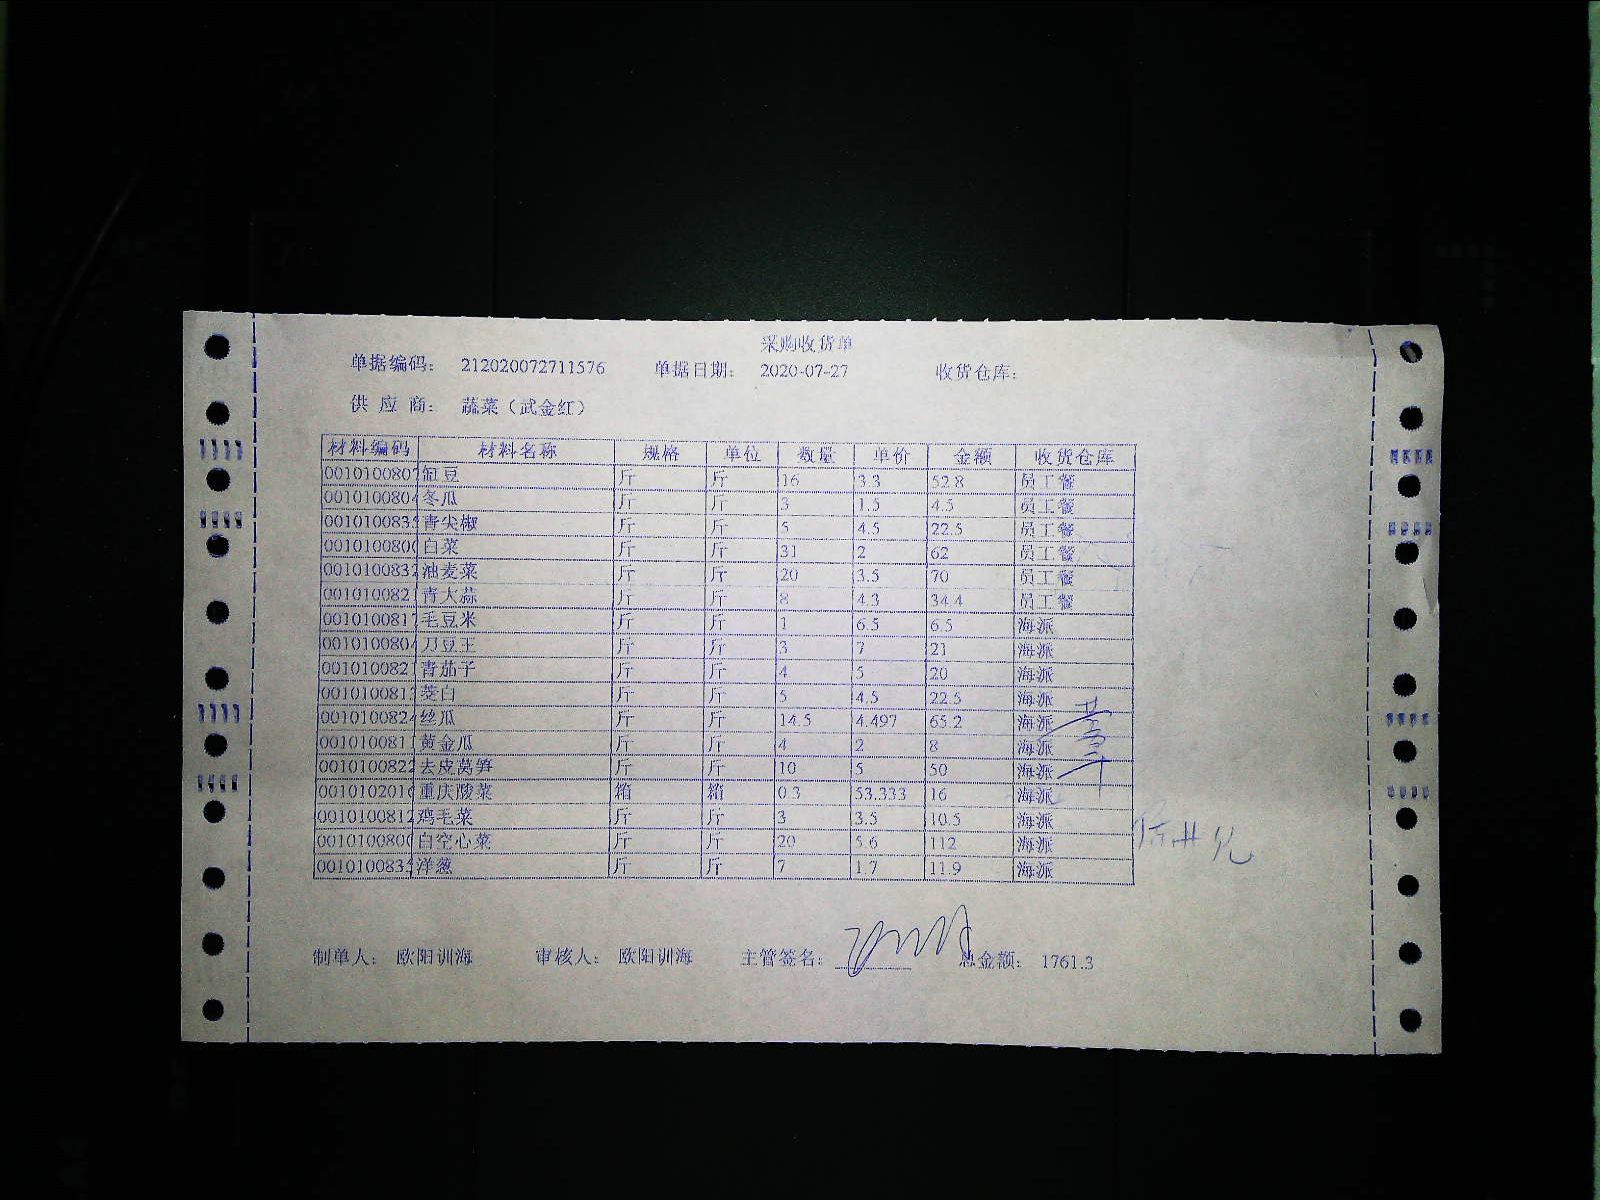 采购收货单
单据编码： 212020072711576 单据日期： 2020-07-27 收货仓库：
供 应 商： 蔬菜（武金红）
材料编码 材料名称 规格 单位 数量 单价 金额 收货仓库
0010100807 豇豆 斤 斤 16 3.3 52.8 员工餐
001010080 冬瓜 斤 斤 3 1.5 4.5 员工餐
001010083 青尖椒 斤 斤 5 4.5 22.5 员工餐
001010080 白菜 斤 斤 31 2 62 员工餐
001010083 油麦菜 斤 斤 20 3.5 70 员工餐
001010082 青大蒜 斤 斤 8 4.3 34.4 员工餐
001010081 毛豆米 斤 斤 1 6.5 6.5 海派
001010080 刀豆王 斤 斤 3 7 21 海派
001010082 青茄子 斤 斤 4 5 20 海派
001010081 茭白 斤 斤 5 4.5 22.5 海派
001010082 丝瓜 斤 斤 14.5 4.497 65.2 海派
001010081 黄金瓜 斤 斤 4 2 8 海派
0010100822 去皮莴笋 斤 斤 10 5 50 海派
001010201 重庆酸菜 箱 箱 0.3 53.333 16 海派
0010100812 鸡毛菜 斤 斤 3 3.5 10.5 海派
001010080 白空心菜 斤 斤 20 5.6 112 海派
001010083 洋葱 斤 斤 7 1.7 11.9 海派
制单人： 欧阳训海 审核人： 欧阳训海 主管签名： 总金额： 1761.3